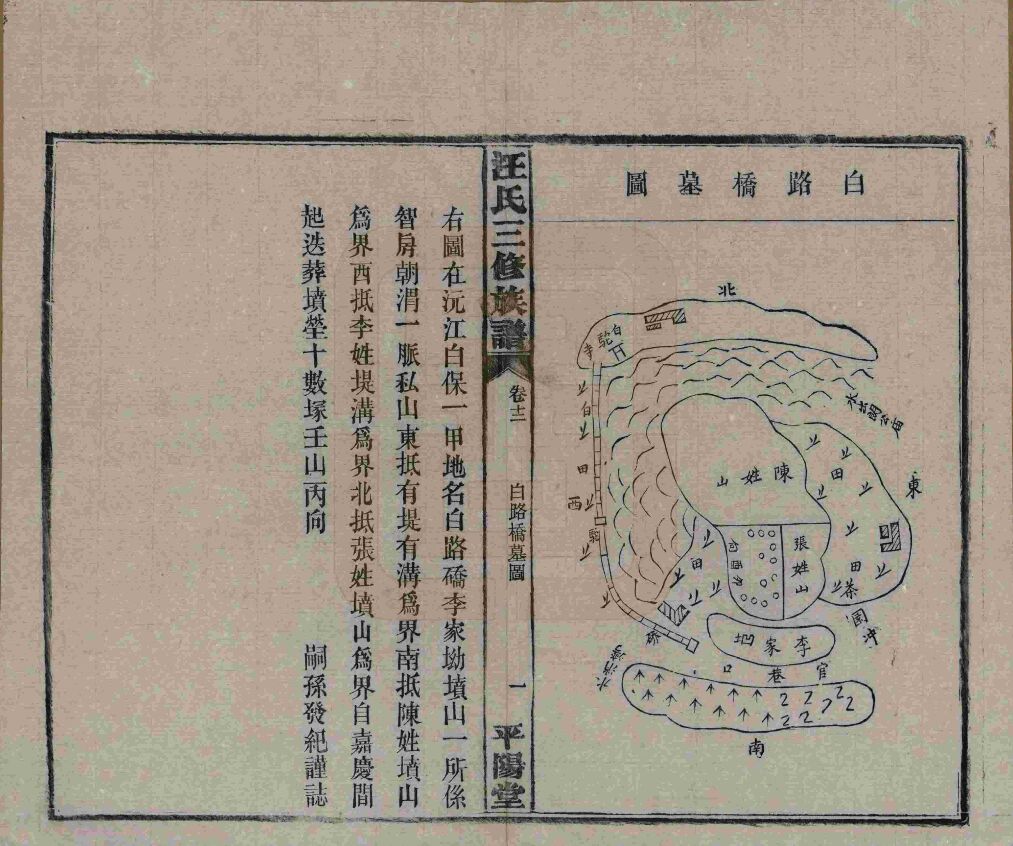 白路橋墓圖
北
白
駝
寺
白
田
西
東
陳姓山
田
張姓山
田
田
茶
園
冲
李家
官
巷
口
南
汪氏三修族譜
卷十二
白路橋墓圖
一
平陽堂
右圖在沅江白保一甲地名白路礄李家坳墳山一所係
智房朝渭一脈私山東抵有堤有溝爲界南抵陳姓墳山
爲界西抵李姓堤溝爲界北抵張姓墳山爲界自嘉慶間
起迭葬墳塋十數塚壬山丙向
嗣孫發紀謹誌